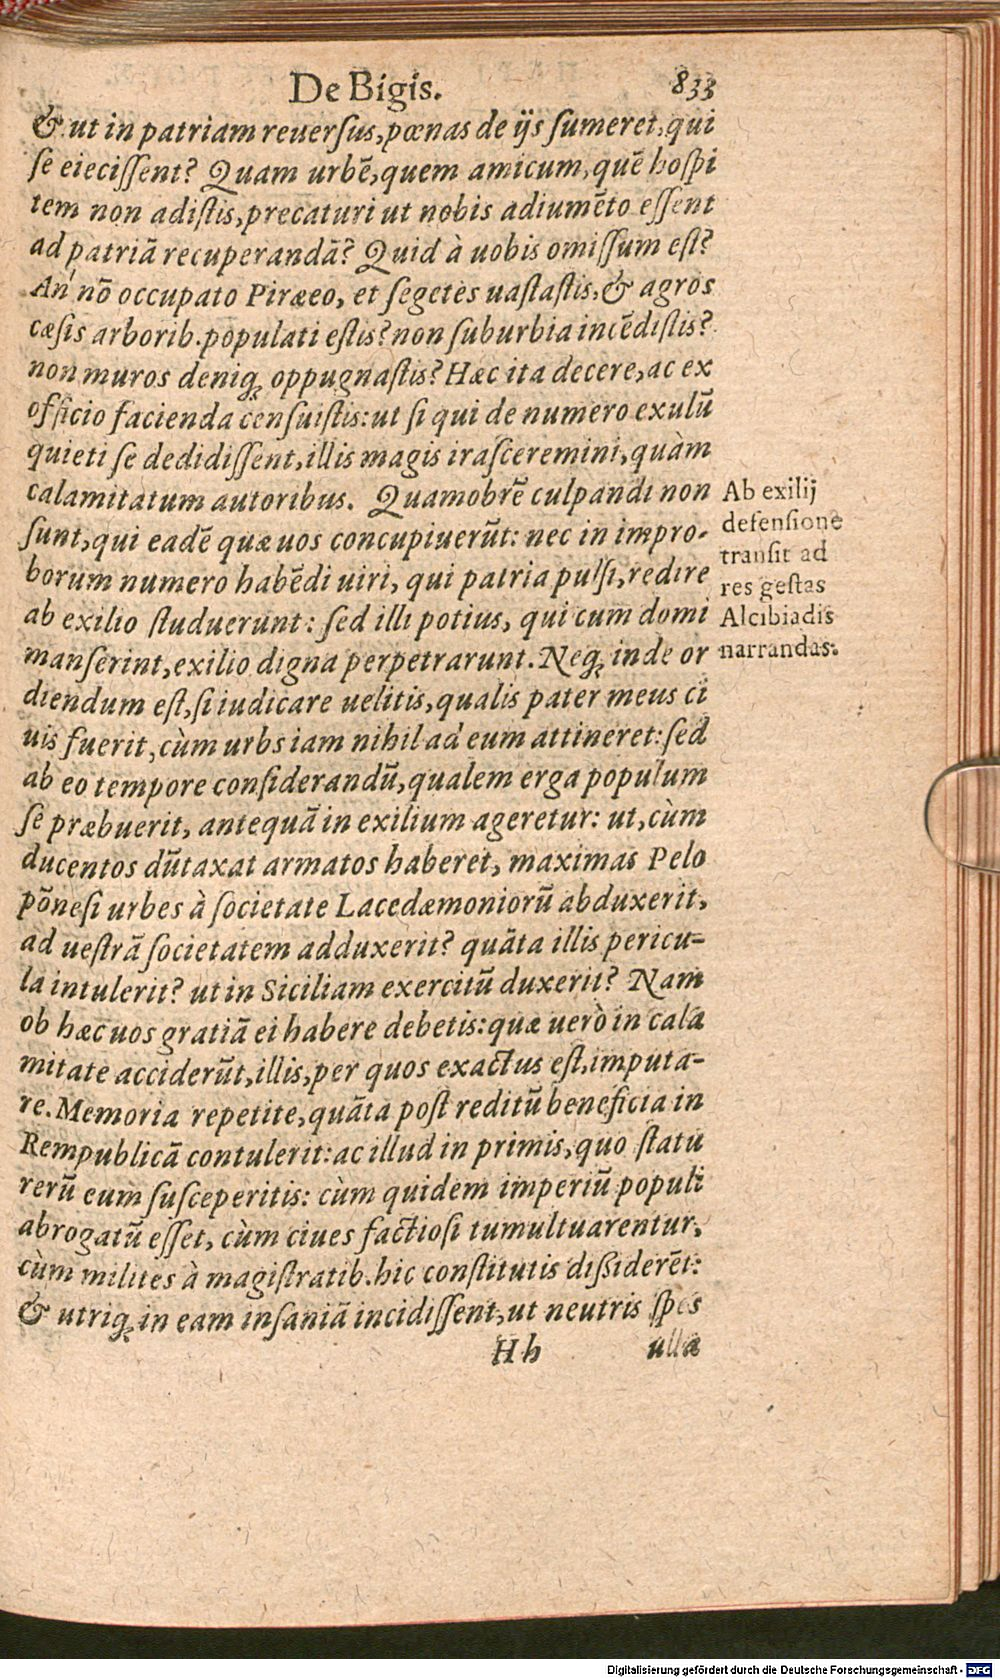 De Bigis. 833
& ut in patriam reuerſus, pœnas de ijs ſumeret, qui
ſe eieciſſent? Quam urbē, quem amicum, quē hoſpi
tem non adiſtis, precaturi ut nobis adiumēto eſſent
ad patriā recuperandā? Quid à uobis omiſſum eſt?
An nō occupato Piræeo, et ſegetes uaſtaſtis, & agros
cæſis arborib. populati eſtis? non ſuburbia incēdiſtis?
non muros deniq; oppugnaſtis? Hæc ita decere, ac ex
officio facienda cenſuiſtis: ut ſi qui de numero exulū
quieti ſe dedidiſſent, illis magis iraſceremini, quàm
calamitatum autoribus. Quamobrē culpandi non
ſunt, qui eadē quæ uos concupiuerūt: nec in impro-
borum numero habēdi uiri, qui patria pulſi, redire
ab exilio ſtuduerunt: ſed illi potius, qui cum domi
manſerint, exilio digna perpetrarunt. Neq; inde or
diendum eſt, ſi iudicare uelitis, qualis pater meus ci
uis fuerit, cùm urbs iam nihil ad eum attineret: ſed
ab eo tempore conſiderandū, qualem erga populum
ſe præbuerit, antequā in exilium ageretur: ut, cùm
ducentos dūtaxat armatos haberet, maximas Pelo
pōneſi urbes à ſocietate Lacedæmoniorū abduxerit,
ad ueſtrā ſocietatem adduxerit? quāta illis pericu-
la intulerit? ut in Siciliam exercitū duxerit? Nam
ob hæc uos gratiā ei habere debetis: quæ uerò in cala
mitate acciderūt, illis, per quos exactus eſt, imputa-
re. Memoria repetite, quāta poſt reditū beneficia in
Rempublicā contulerit: ac illud in primis, quo ſtatu
rerū eum ſuſceperitis: cùm quidem imperiū populi
abrogatū eſſet, cùm ciues factioſi tumultuarentur,
cùm milites à magiſtratib. hic conſtitutis dißiderēt:
& utriq; in eam inſaniā incidiſſent, ut neutris ſpes
Hh ulla
Ab exilij
defenſione
tranſit ad
res geſtas
Alcibiadis
narrandas.
Digitalisierung gefördert durch die Deutsche Forschungsgemeinschaft - DFG